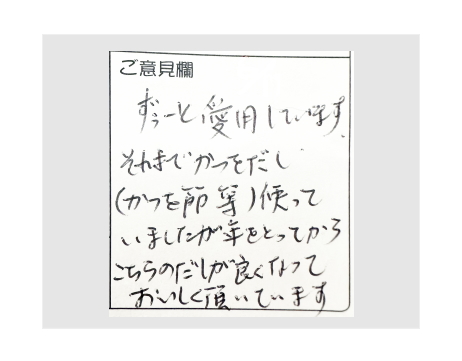 ご意見欄
ずぅーと愛用しています。
それまでかつをだし
(かつを節等)使って
いましたが年をとってから
こちらのだしが良くなって
おいしく頂いています